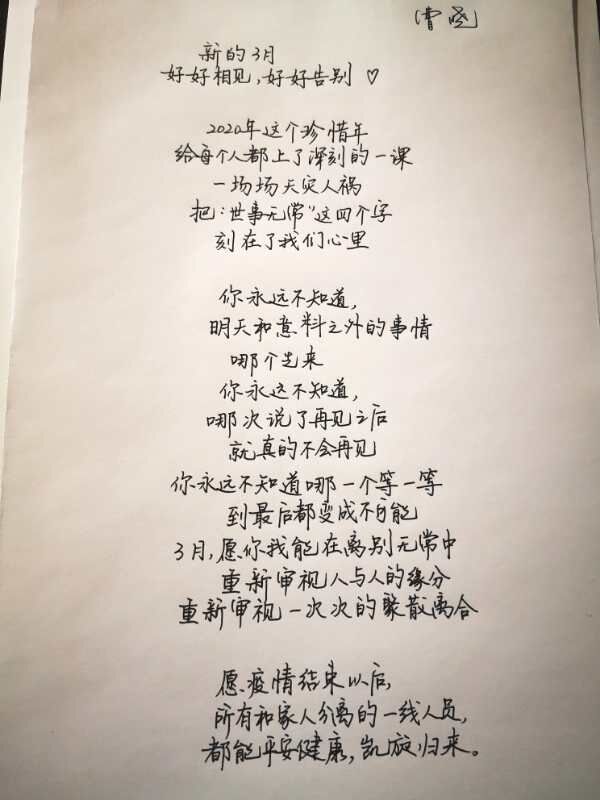 曹晓
新的3月
好好相见,好好告别 ♡
2020年这个珍惜年
给每个人都上了深刻的一课
一场场天灾人祸
把:世事无常"这四个字
刻在了我们心里
你永远不知道,
明天和意料之外的事情
哪个先来
你永远不知道,
哪次说了再见之后
就真的不会再见
你永远不知道哪一个等一等
到最后都变成不可能
3月,愿你我能在离别无常中
重新审视人与人的缘分
重新审视一次次的聚散离合
愿疫情结束以后,
所有和家人分离的一线人员,
都能平安健康,凯旋归来。